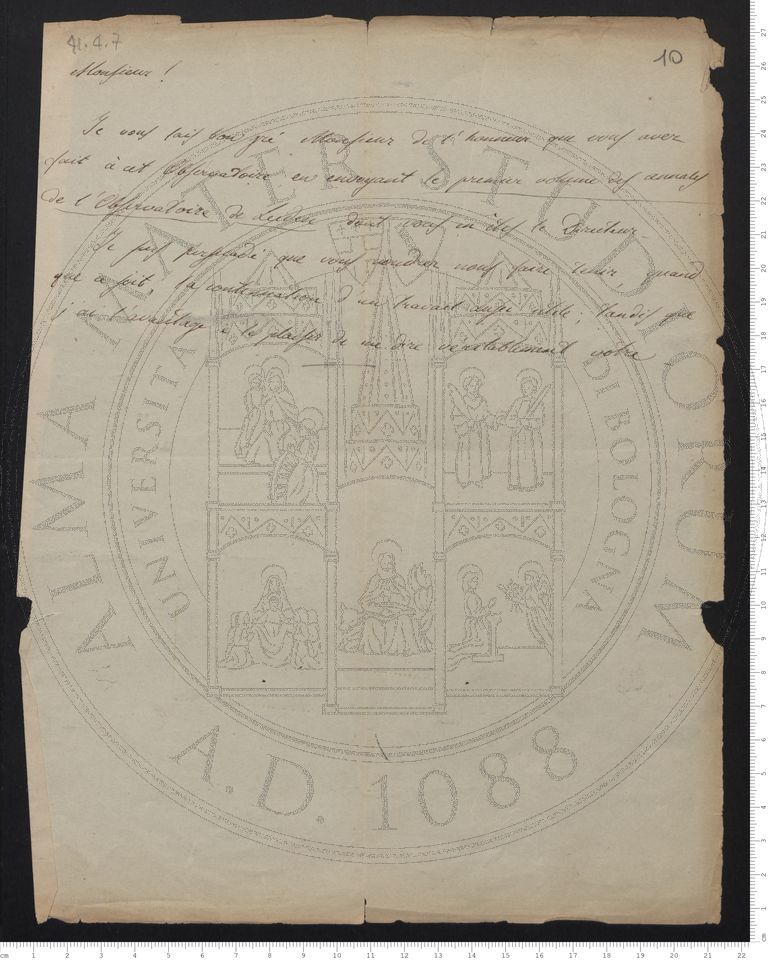 41.4.7
10
Monsieur !
Je vous sais bon gré Monsieur de l'honneur que vous avez
fait à cet Observatoire en envoyant le premier volume des annales
de l'Observatoire de Leiden dont vous en êtes le Directeur.
Je suis persuadé que vous voudrez nous faire tenir, quand
que ce soit, la continuation d'un travail aussi utile; tandis que
j'ai l'avantage e le plaisir de me dire véritablement votre
ALMA MATER STUDIORUM
UNIVERSITA DI BOLOGNA
A.D. 1088